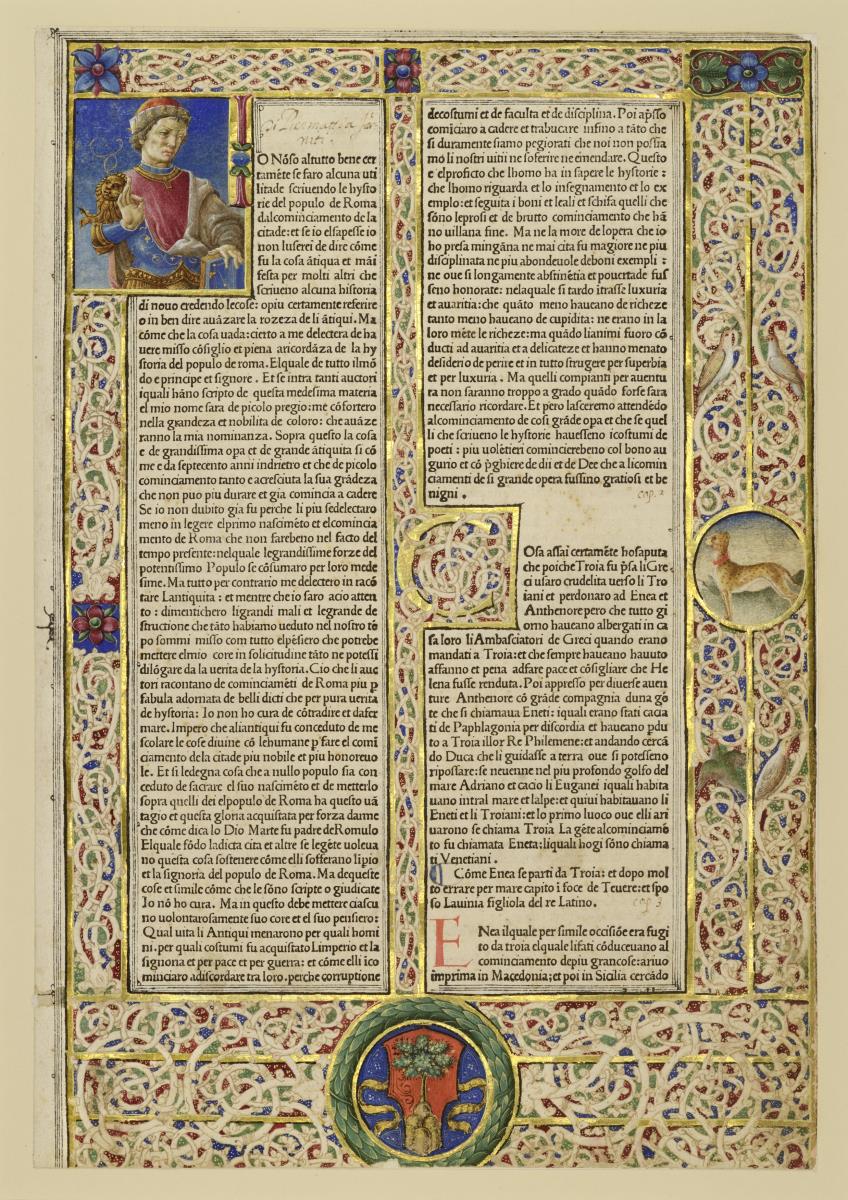 O Nõso altutto bene cer
tamẽte se faro alcuna uti
litade scriuendo le hysto
rie del populo de Roma
dalcominciamento de la
citade: et se io elsapesse io
non luserei de dire cõme
fu la cosa ãtiqua et mãi
festa per molti altri che
scriueno alcuna historia
di nouo credendo lecose: opiu certamente referire
o in ben dire auãzare la rozeza de li ãtiqui. Ma
cõme che la cosa uada: cierto a me delectera de ha
uere misso cõsiglio et piena aricordãza de la hy
storia del populo de roma. Elquale de tutto ilmõ
do e principe et signore . Et se intra tanti auctori
iquali hãno scripto de questa medesima materia
el mio nome sara de picolo pregio: me cõfortero
nella grandeza et nobilita de coloro: che auãze
ranno la mia nominanza. Sopra questo la cosa
e de grandissima opa et de grande ãtiquita si cõ
me e da septecento anni indrietro et che de picolo
cominciamento tanto e acresciuta la sua grãdeza
che non puo piu durare et gia comincia a cadere
Se io non dubito gia fu perche li piu sedelectaro
meno in legere elprimo nascimẽto et elcomincia
mento de Roma che non farebeno nel facto del
tempo presente: nelquale legrandissime forze del
potentissimo Populo se cõsumaro per loro mede
sime. Ma tutto per contrario me delectero in racõ
tare Lantiquita : et mentre che io saro acio atten
to : dimentichero ligrandi mali et legrande de
structione che tãto habiamo ueduto nel nostro tẽ
po sommi misso com tutto elpẽsiero che potrebe
mettere elmio core in solicitudine tãto ne potessi
dilõgare da la uerita de la hystoria. Cio che li auc
tori racontano de cominciamẽti de Roma piu ꝑ
fabula adornata de belli dicti che per pura uerita
de hystoria: Io non ho cura de cõtradire et dafer
mare. Impero che aliantiqui fu conceduto de me
scolare le cose diuine cõ lehumane p̃ fare el comĩ
ciamento de la citade piu nobile et piu honoreuo
le. Et si ledegna cosa che a nullo populo sia con
ceduto de sacrare el suo nascimẽto et de metterlo
sopra quelli dei elpopulo de Roma ha questo uã
tagio et questa gloria acquistata per forza darme
che cõme dica lo Dio Marte fu padre de Romulo
Elquale fõdo ladicta cita et altre se legẽte uoleua
no questa cosa sostenere cõme elli sofferano lipio
et la signoria del populo de Roma. Ma dequeste
cose et simile cõme che le sõno scripte o giudicate
Io nõ ho cura. Ma in questo debe mettere ciascu
no uolontarosamente suo core et el suo pensiero:
Qual uita li Antiqui menarono per quali homi
ni. per quali costumi fu acquistato Limperio et la
signoria et per pace et per guerra: et cõme elli ico
minciaro adiscordare tra loro. perche corruptione
decostumi et de faculta et de disciplina. Poi ap̃sso
comĩciaro a cadere et trabucare infino a tãto che
si duramente siamo pegiorati che noi non possia
mo li nostri uitii ne soferire ne emendare. Questo
e elproficto che lhomo ha in sapere le hystorie :
che lhomo riguarda et lo insegnamento et lo ex
emplo: et seguita i boni et leali et schifa quelli che
sõno leprosi et de brutto cominciamento che hã
no uillana fine. Ma ne la more de lopera che io
ho presa mingãna ne mai cita fu magiore ne piu
disciplinata ne piu abondeuole deboni exempli :
ne oue si longamente abstinẽtia et pouertade fus
seno honorate: nelaquale si tardo itrasse luxuria
et auaritia: che quãto meno haueano de richeze
tanto meno haueano de cupidita: ne erano in la
loro mẽte le richeze: ma quãdo lianimi fuoro cõ
ducti ad auaritia et a delicateze et hanno menato
desiderio de perire et in tutto strugere per superbia
et per luxuria . Ma quelli compianti per auentu
ra non saranno troppo a grado quãdo forse sara
necessario ricordare. Et pero lasceremo attendẽdo
alcominciamento de cosi grãde opa et che se quel
li che scriueno le hystorie hauesseno icostumi de
poeti : piu uolẽtieri cominciere beno col bono au
gurio et cõ p̃ghiere de dii et de Dee che a licomin
ciamenti de si grande opera fussino gratiosi et be
nigni .
cap. 2
Osa assai certamẽte ho saputa
che poiche Troia fu p̃sa li Gre
ci usaro crudelita uerso li Tro
iani et perdonaro ad Enea et
Anthenore pero che tutto gi
orno haueano albergati in ca
sa loro li Ambasciatori de Greci quando erano
mandati a Troia: et che sempre haueano hauuto
affanno et pena adfare pace et cõsigliare che He
lena fusse renduta. Poi appresso per diuerse auen
ture Anthenore cõ grãde compagnia duna gẽ
te che si chiamaua Eneti: iquali erano stati cacia
ti de Paphlagonia per discordia et haueano pdu
to a Troia illor Re Philemene: et andando cercã
do Duca che li guidasse a terra oue si potesseno
ripossare: se neuenne nel piu profondo golfo del
mare Adriano et cacio li Euganei iquali habita
uano intral mare et lalpe: et quiui habitauano li
Eneti et li Troiani: et lo primo luoco oue elli ari
uarono se chiama Troia La gẽte alcominciamẽ
to fu chiamata Eneta: liquali hogi sõno chiama
ti Venetiani.
Cõme Enea se parti da Troia: et dopo mol
to errare per mare capito i foce de Teuere: et spo
so Lauinia figliola del re Latino.
cap 3
E Nea ilquale per simile occisiõe era fugi
to da troia elquale lifati cõduceuano al
cominciamento depiu grancose: ariuo
imprima in Macedonia: et poi in Sicilia cercãdo